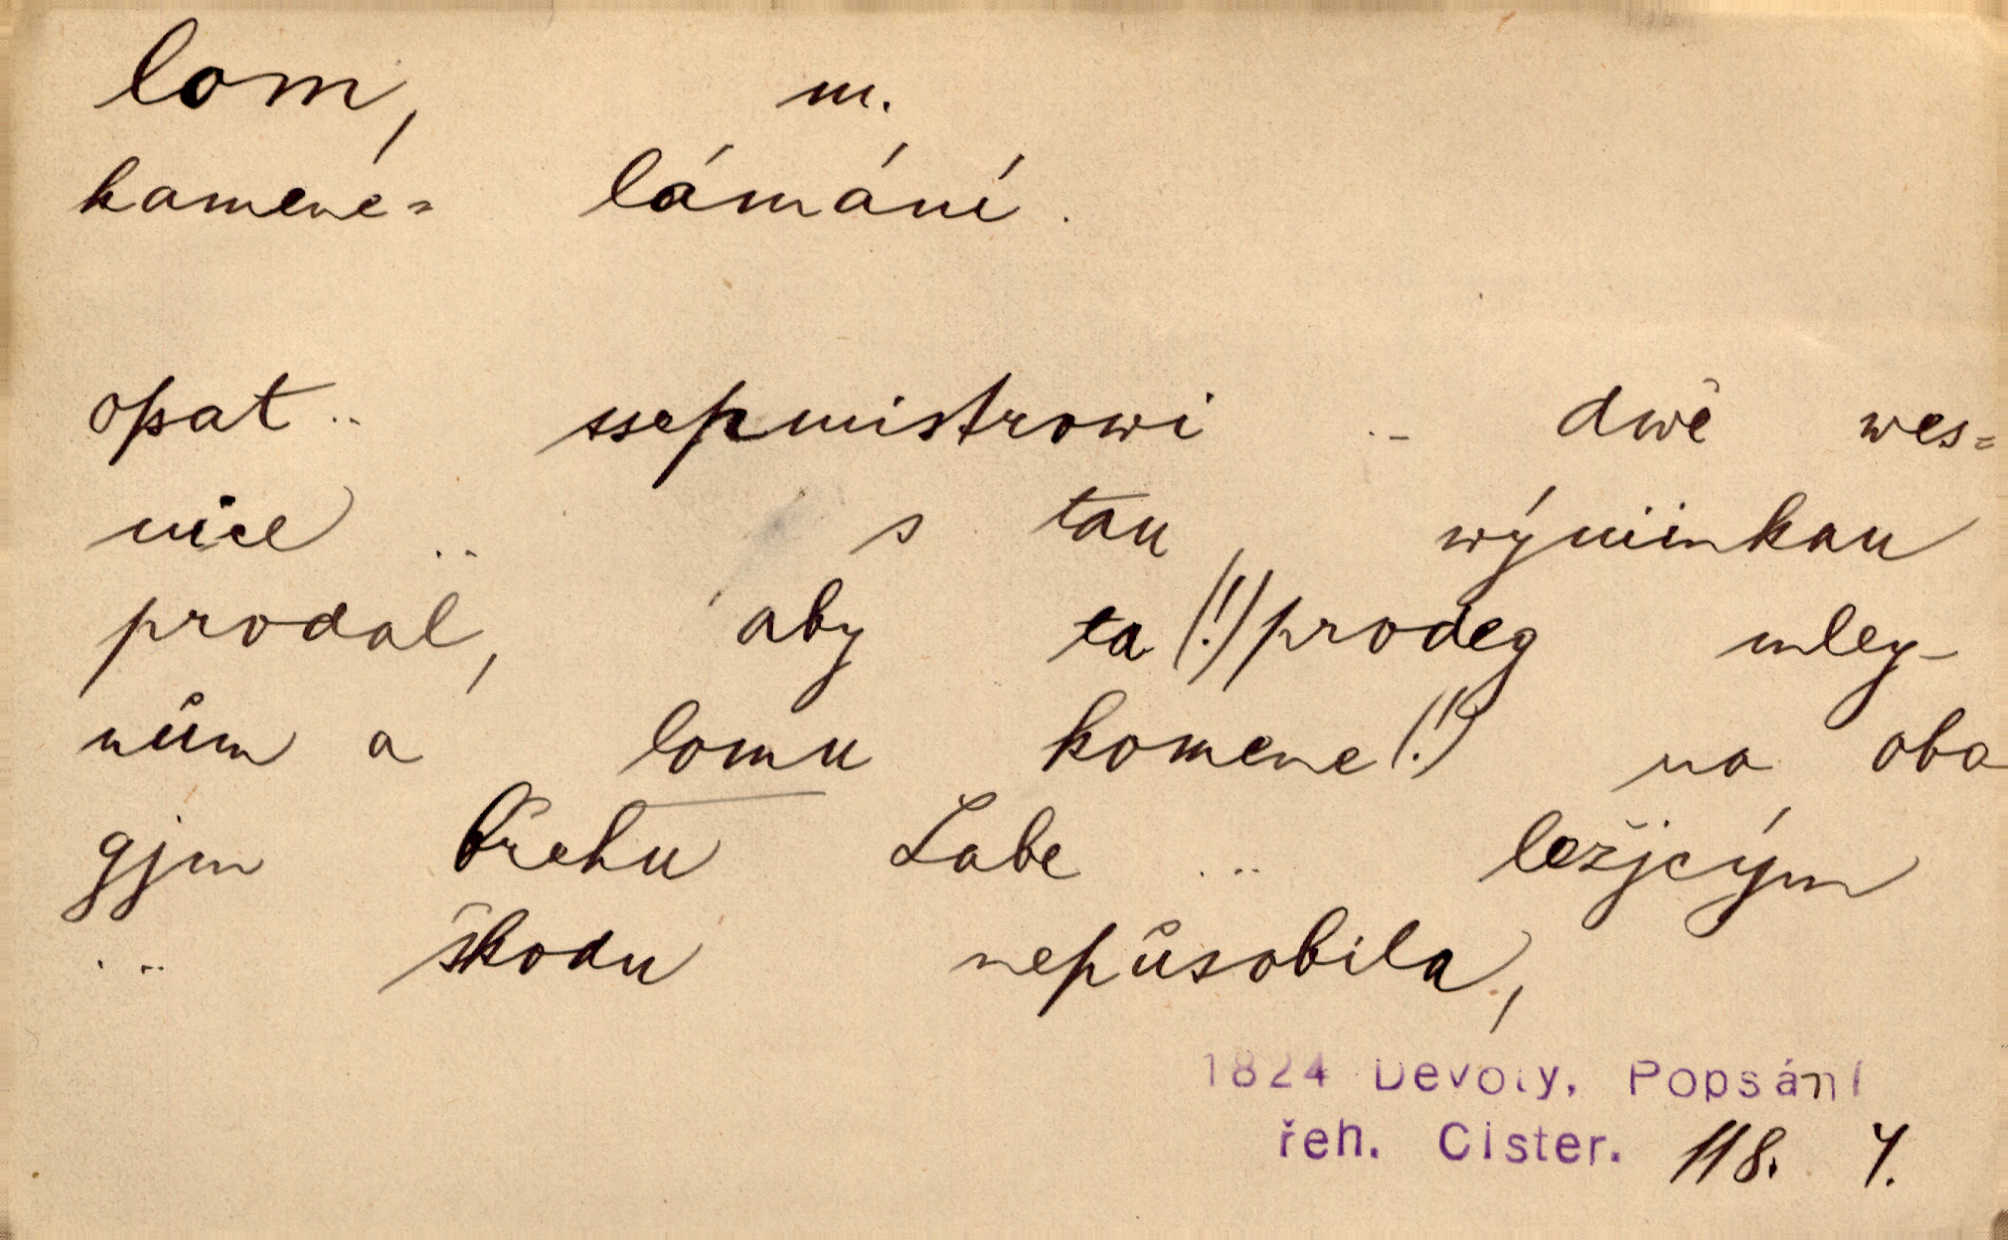 lom, m.
kamene= lámání.
opat .. ssepmistrowi .. dwě wes=
nice .. s tau wýminkau
prodal, aby ta (!) prodeg mley-
nům a lomu komene (!) na oba
gjm břehu Labe ... ležjcým
... škodu nepůsobila,
1824 Devoty, Popsání
řeh. Cister. 118. Y.